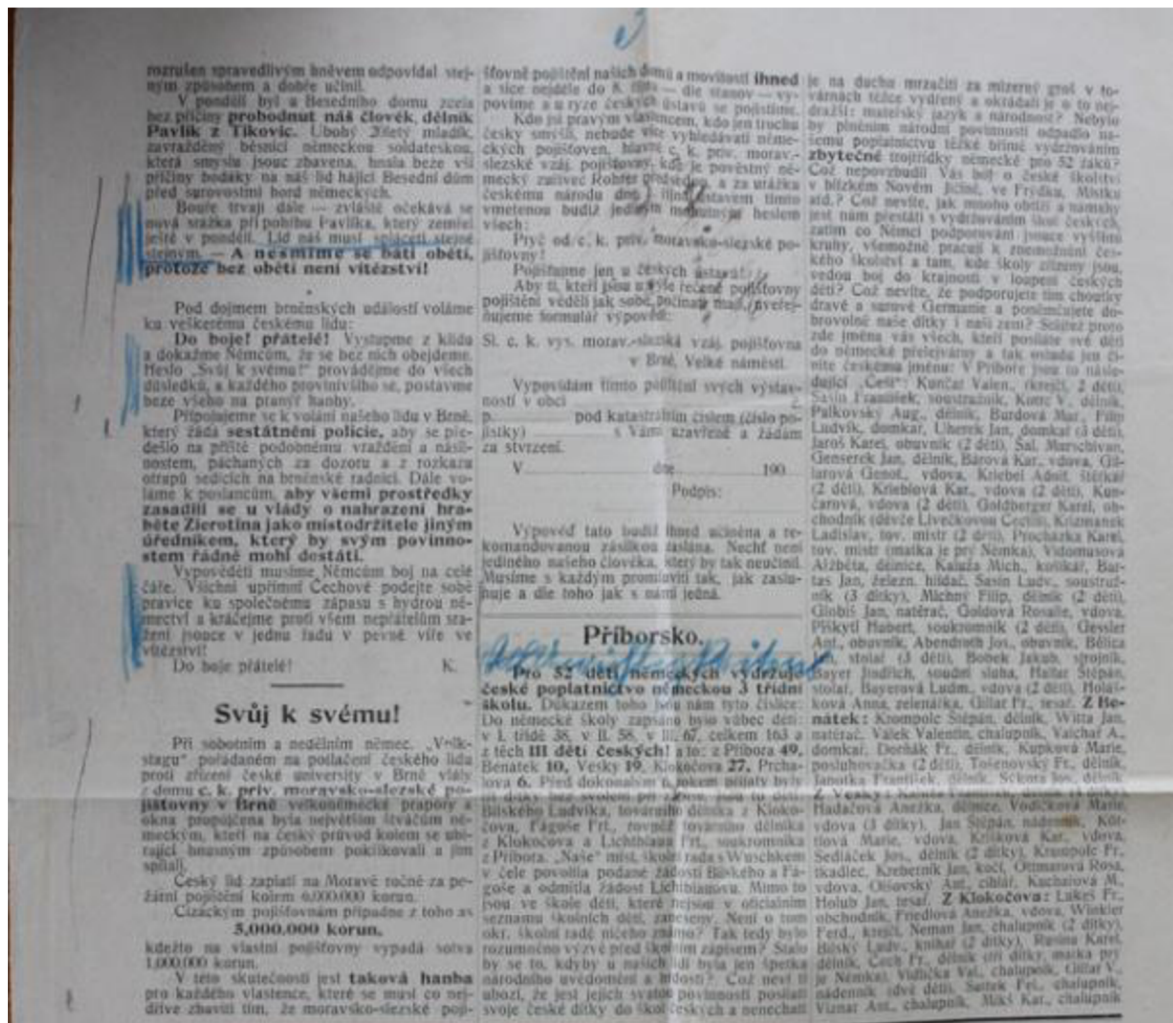 3
rozrušen spravedlivým hněvem odpovídal stej-
ným způsobem a dobře učinil.
V pondělí byl u Besedního domu zcela
bez příčiny probodnut náš člověk, dělník
Pavlík z Tikovic. Ubohý mladík,
zavražděný běsnící německou soldateskou,
která smyslu jsouc zbavena, hnala beze vší
příčiny bodáky na náš lid hájící Besední dům
před surovostmi hord německých.
Bouře trvají dále — zvláště očekává se
nová srážka při pohřbu Pavlíka, který zemřel
ještě v pondělí. Lid náš musí spláceti stejné
stejným. — A nesmíme se báti obětí,
protože bez obětí není vítězství!
Pod dojmem brněnských událostí voláme
ku veškerému českému lidu:
Do boje! přátelé! Vystupme z klidu
a dokažme Němcům, že se bez nich obejdeme.
Heslo „Svůj k svému!" provádějme do všech
důsledků, a každého provinivšího se, postavme
beze všeho na pranýř hanby.
Připojujeme se k volání našeho lidu v Brně,
který žádá sestátnění policie, aby se pře-
dešlo na příště podobnému vraždění a násil-
nostem, páchaných za dozoru a z rozkazu
otrapů sedících na brněnské radnici. Dále vo-
láme k poslancům, aby všemi prostředky
zasadili se u vlády o nahrazení hra-
běte Zierotina jako místodržitele jiným
úředníkem, který by svým povinno-
stem řádně mohl dostáti.
Vypověděti musíme Němcům boj na celé
čáře. Všichni upřímní Čechové podejte sobě
pravice ku společnému zápasu s hydrou ně-
mectví a kráčejme proti všem nepřátelům sra-
ženi jsouce v jednu řadu v pevné víře ve
vítězství!
Do boje přátelé! K.
Svůj k svému!
Při sobotním a nedělním němec. „Volk-
stagu" pořádaném na potlačení českého lidu
proti zřízení české university v Brně vlály
z domu c. k. priv. moravsko-slezské po-
jišťovny v Brně velkoněmecké prapory a
okna propůjčena byla největším štváčům ně-
meckým, kteří na český průvod kolem se ubí-
rající hnusným způsobem pokřikovali a jim
spílali.
Český lid zaplatí na Moravě ročně za po-
žární pojištění kolem 6,000.000 korun.
Cizáckým pojišťovnám připadne z toho as
5,000.000 korun,
kdežto na vlastní pojišťovny vypadá sotva
1,000.000 korun.
V této skutečnosti jest taková hanba
pro každého vlastence, které se musí co nej-
dříve zhaviti tím, že moravsko-slezské poji-
šťovně pojištění našich domů a movitostí ihned
a sice nejdéle do 8 — dle stanov — vy-
povíme a u ryze českých ústavů se pojistíme.
Kdo jsi pravým vlastencem, kdo jen trochu
česky smýšlí, nebude více vyhledávati něme-
ckých pojišťoven, hlavně c. k. priv. morav.-
slezské vzáj. pojišťovny, kde je pověstný ně-
mecký zuřivec Rohrer předsedou, a za urážku
českému národu ústavem tímto
vmetenou budiž jediným heslem
všech:
Pryč od c. k. priv. moravsko-slezské po-
jišťovny!
Pojišťujme jen u českých ústavů!
Aby ti, kteří jsou u výše řečené pojišťovny
pojištěni věděli jak sobě počínati mají, uveřej-
ňujeme formulář výpovědi:
Sl. c. k. vys. morav.-slezská vzáj. pojišťovna
v Brně, Velké náměstí.
Vypovídám tímto pojištění svých výstav-
ností v obci
p. pod katastrálním číslem (číslo po-
jistky) s Vámi uzavřené a žádám
za stvrzení.
V dne 190
Podpis:
Výpověď tato budiž ihned učiněna a re-
komandovanou zásilkou zaslána. Nechť není
jediného našeho člověka, který by tak neučinil.
Musíme s každým promluviti tak, jak zaslu-
huje a dle toho jak s námi jedná.
Příborsko.
Pro 52 dětí německých vydržuje
české poplatnictvo německou 3 třídní
školu. Důkazem toho jsou nám tyto číslice:
Do německé školy zapsáno bylo vůbec dětí:
v I. třídě 38, v II. 58, v III. 67, celkem 163 a
z těch 111 dětí českých! a to: z Příbora 49,
Benátek 10, Vesky 19, Klokočova 27, Prcha-
lova 6. Před dokonalým 6. rokem přijaty byly
tři dítky bez svolení při zápise, jsou to děti:
Bílského Ludvíka, továrního dělníka z Kloko-
čova, Fágoše Frt., rovněž továrního dělníka
z Klokočova a Lichiblaua Frt., soukromníka
z Příbora. „Naše" míst. školní rada s Wuschkem
v čele povolila podané žádosti Bílského a Fa-
goše a odmítla žádost Lichiblauovu. Mimo to
jsou ve škole děti, které nejsou v oficialním
seznamu školních dětí, zaneseny. Není o tom
okr. školní radě ničeho známo? Tak tedy bylo
rozumno výzvě před školním zápisem? Stalo
by se to, kdyby u našich lidí byla jen špetka
národního uvědomění a hrdosti? Což neví ti
ubozí, že jest jejich svatou povinností posílati
svoje české dítky do škol českých a nenechati
je na duchu mrzačiti za mizerný groš v to-
várnách těžce vydřený a okrádati je o to nej-
dražší: mateřský jazyk a národnost? Nebylo
by plněním národní povinnosti odpadlo na-
šemu poplatnictvu těžké břímě vydržováním
zbytečné trojtřídky německé pro 52 žáků?
Což nepovzbudil Vás boj o české školství
v blízkém Novém Jičíně, ve Frýdku, Místku
atd.? Což nevíte, jak mnoho obtíží a námahy
jest nám přestáti s vydržováním škol českých,
zatím co Němci podporováni jsouce vyššími
kruhy, všemožně pracují k znemožnění čes-
kého školství a tam, kde školy zřízeny jsou,
vedou boj do krajnosti v loupení českých
dětí? Což nevíte, že podporujete tím choutky
dravé a surové Germanie a poněmčujete do-
brovolně naše dítky i naši zem? Sdělujeme proto
zde jména vás všech, kteří posíláte své děti
do německé přelejvárny a tak ostudu jen či-
níte českému jménu: V Příboře jsou to násle-
dující „Češi": Kunčar Valen., (krejčí, 2 děti),
Sasín František, soustružník, Kotrc V., dělník,
Palkovský Aug., dělník, Burdová Mar., Filip
Ludvík, domkář, Uherek Jan, domkář (3 děti),
Jaroš Karel, obuvník (2 děti), Šal. Marschivan,
Genserek Jan, dělník, Bárová Kar., vdova, Gil-
larová Genof., vdova, Kriebel Adolf, štěrkař
(2 děti), Krieblová Kar., vdova (2 děti), Kun-
čarová, vdova (2 děti), Goldberger Karel, ob-
chodník (děvče Livečkovou Cecilii), Křižmánek
Ladislav, tov. mistr (2 děti), Procházka Karel,
tov. mistr (matka je prý Němka), Vidomusová
Alžběta, dělnice, Kaluža Mich., košíkář, Bar-
tas Jan, železn. hlídač, Sasín Ludv., soustruž-
ník (3 dítky), Michný Filip, dělník (2 děti),
Globiš Jan, natěrač, Goldová Rosalie, vdova,
Piškytl Hubert, soukromník (2 děti), Gessler
Ant., obuvník, Abendroth Jos., obuvník, Bělica
stolař (3 děti), Bobek Jakub, strojník,
Bayer Jindřich, soudní sluha, Hallar Štěpán,
stolař, Bayerová Ludm., vdova (2 děti), Holáš-
ková Anna, zelenářka, Gillar Fr., tesař. Z Be-
nátek: Krompolc Štěpán, dělník, Witta Jan,
natěrač, Válek Valentin, chalupník, Valchař A.,
domkář, Dorňák Fr., dělník, Kupková Marie,
posluhovačka (2 děti), Tošenovský Fr., dělník,
Janotka František, dělník, Sýkora Jos. dělník.
Z Vesky:
Hadačová Anežka, dělnice, Vodičková Marie,
vdova (3 dítky), Jan Štěpán, nádenník, Köt-
tlová Marie, vdova, Kříšková Kar., vdova,
Sedláček Jos., dělník (2 dítky), Krampolc Fr.,
tkadlec, Kreberník Jan, kočí, Ottmarová Rosa,
vdova, Olšovský Ant., cihlář, Kuchařová M.,
Holub Jan, tesař. Z Klokočova: Lukeš Fr.,
obchodník, Friedlová Anežka, vdova, Winkler
Ferd., krejčí, Neman Jan, chalupník (2 dítky),
Bílský Ludv., knihař (2 dítky), Rusina Karel,
dělník, Čech Fr., dělník (tři dítky, matka prý
je Němka), Vidlička Val., chalupník, Gillar V.,
nádenník (dvě děti), Šustek Fel., chalupník,
Viznar Ant., chalupník, Mikš Kar., chalupník